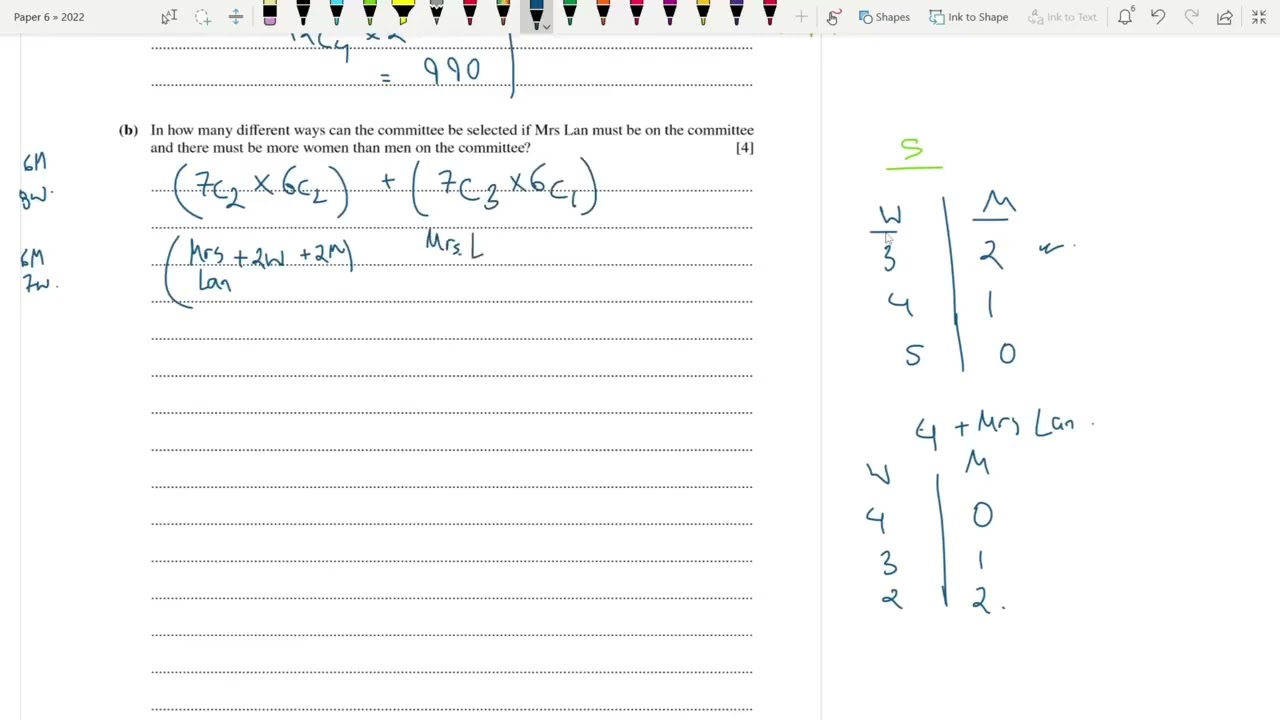 Paper 6 » 2022
Shapes
Ink to Shape
Ink to Text
6
12C4 × 2
= 990
(b) In how many different ways can the committee be selected if Mrs Lan must be on the committee
and there must be more women than men on the committee? [4]
6M
8W.
(7C2 × 6C2) + (7C3 × 6C1)
6M
7W.
(Mrs + 2W + 2M) Mrs. L
Lan
5
W M
3 2
4 1
5 0
4 + Mrs Lan.
W M
4 0
3 1
2 2.